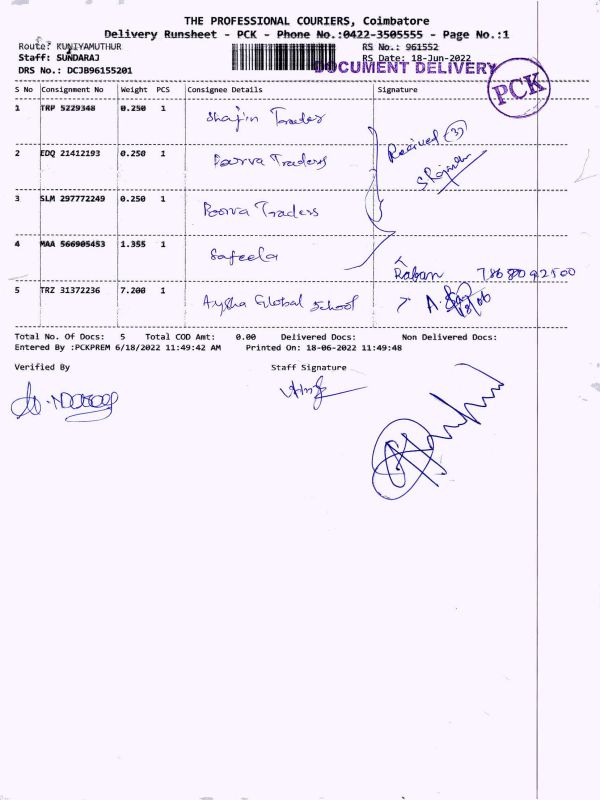 THE PROFESSIONAL COURIERS, Coimbatore
Delivery Runsheet - PCK - Phone No.:0422-3505555 - Page No.:1
Route: KUNIYAMUTHUR RS No.: 961552
Staff: SUNDARAJ RS Date: 18-Jun-2022
DOCUMENT DELIVERY
PCK
DRS No.: DCJB96155201
S No Consignment No Weight PCS Consignee Details Signature
1 TRP 5229348 0.250 1 Shajin Trader
Received (3)
2 EDQ 21412193 0.250 1 Poorva Traders
3 SLM 297772249 0.250 1 Poorva Traders
4 MAA 566905453 1.355 1 Safeela
Raban 7868092500
5 TRZ 31372236 7.200 1 Aysha Global School
Total No. Of Docs: 5 Total COD Amt: 0.00 Delivered Docs: Non Delivered Docs:
Entered By :PCKPREM 6/18/2022 11:49:42 AM Printed On: 18-06-2022 11:49:48
Verified By Staff Signature